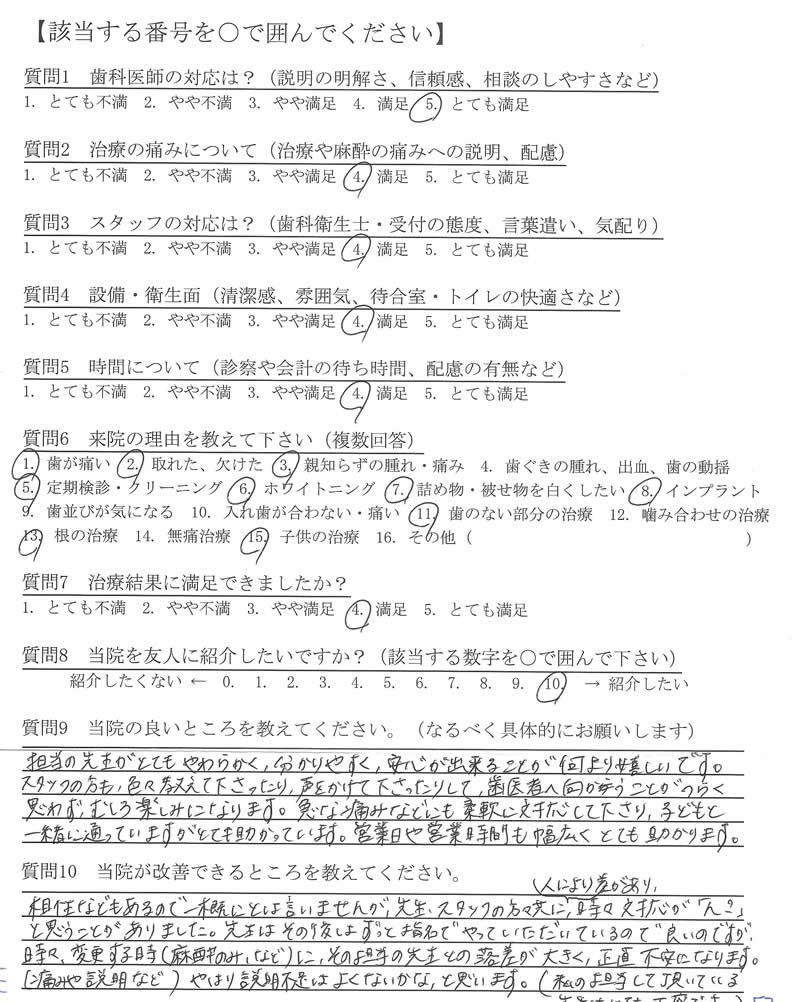 【該当する番号を〇で囲んでください】
質問1　歯科医師の対応は？（説明の明解さ、信頼感、相談のしやすさなど）
1. とても不満　2. やや不満　3. やや満足　4. 満足　5. とても満足
質問2　治療の痛みについて（治療や麻酔の痛みへの説明、配慮）
1. とても不満　2. やや不満　3. やや満足　4. 満足　5. とても満足
質問3　スタッフの対応は？（歯科衛生士・受付の態度、言葉遣い、気配り）
1. とても不満　2. やや不満　3. やや満足　4. 満足　5. とても満足
質問4　設備・衛生面（清潔感、雰囲気、待合室・トイレの快適さなど）
1. とても不満　2. やや不満　3. やや満足　4. 満足　5. とても満足
質問5　時間について（診察や会計の待ち時間、配慮の有無など）
1. とても不満　2. やや不満　3. やや満足　4. 満足　5. とても満足
質問6　来院の理由を教えて下さい（複数回答）
1. 歯が痛い　2. 取れた、欠けた　3. 親知らずの腫れ・痛み　4. 歯ぐきの腫れ、出血、歯の動揺
5. 定期検診・クリーニング　6. ホワイトニング　7. 詰め物・被せ物を白くしたい　8. インプラント
9. 歯並びが気になる　10. 入れ歯が合わない・痛い　11. 歯のない部分の治療　12. 噛み合わせの治療
13. 根の治療　14. 無痛治療　15. 子供の治療　16. その他（　　　）
質問7　治療結果に満足できましたか？
1. とても不満　2. やや不満　3. やや満足　4. 満足　5. とても満足
質問8　当院を友人に紹介したいですか？（該当する数字を〇で囲んで下さい）
紹介したくない ← 0. 1. 2. 3. 4. 5. 6. 7. 8. 9. 10. → 紹介したい
質問9　当院の良いところを教えてください。（なるべく具体的にお願いします）
担当の先生がとてもやわらかく、分かりやすく、安心が出来ることが何より嬉しいです。
スタッフの方も、色々教えて下さったり、声をかけて下さったりして、歯医者へ向かうことがつらく
思わず、むしろ楽しみになります。急な痛みなどにも柔軟に対応して下さり、子どもと
一緒に通っていますがとても助かっています。営業日や営業時間も幅広くとても助かります。
質問10　当院が改善できるところを教えてください。
人により差があり、
相性などもあるので一概にとは言いませんが、先生、スタッフの方々共に、時々対応が「ん？」
と思うことがありました。先生はその後はずっと指名でやっていただいているので良いのですが、
時々、変更する時（麻酔のみ、など）に、その担当の先生との落差が大きく、正直不安になります。
（痛みや説明など）やはり説明不足はよくないかな、と思います。（私の担当して頂いている